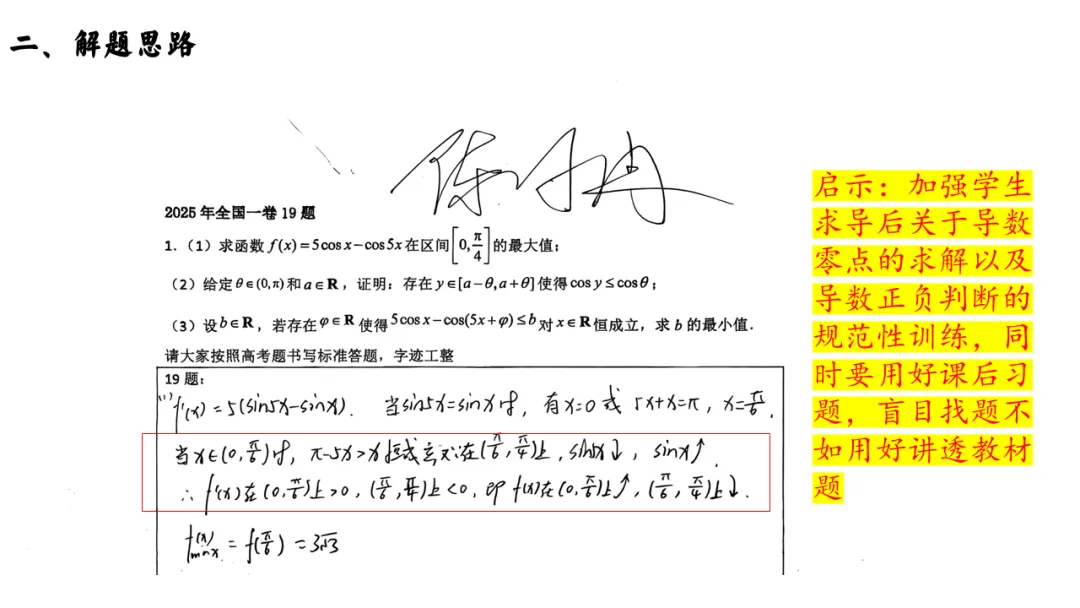 二、解题思路
2025年全国一卷19题
1.（1）求函数 f(x)=5cosx−cos5x 在区间[0,π/4]的最大值；
（2）给定θ∈(0,π)和a∈R，证明：存在y∈[a−θ,a+θ]使得cosy≤cosθ；
（3）设b∈R，若存在φ∈R使得5cosx−cos(5x+φ)≤b对x∈R恒成立，求b的最小值.
请大家按照高考题书写标准答题，字迹工整
19题：
(1) f'(x)=5(sin5x−sinx). 当sin5x=sinx时，有x=0或5x+x=π，x=π/6.
当x∈(0,π/6)时，π−5x>x恒成立 又在(π/6,π/4)上，sin5x↓，sinx↑
∴ f'(x)在(0,π/6)上>0，(π/6,π/4)上<0，即f(x)在(0,π/6)上↑，(π/6,π/4)上↓.
f(x)max=f(π/6)=3√3
启示：加强学生
求导后关于导数
零点的求解以及
导数正负判断的
规范性训练，同
时要用好课后习
题，盲目找题不
如用好讲透教材
题